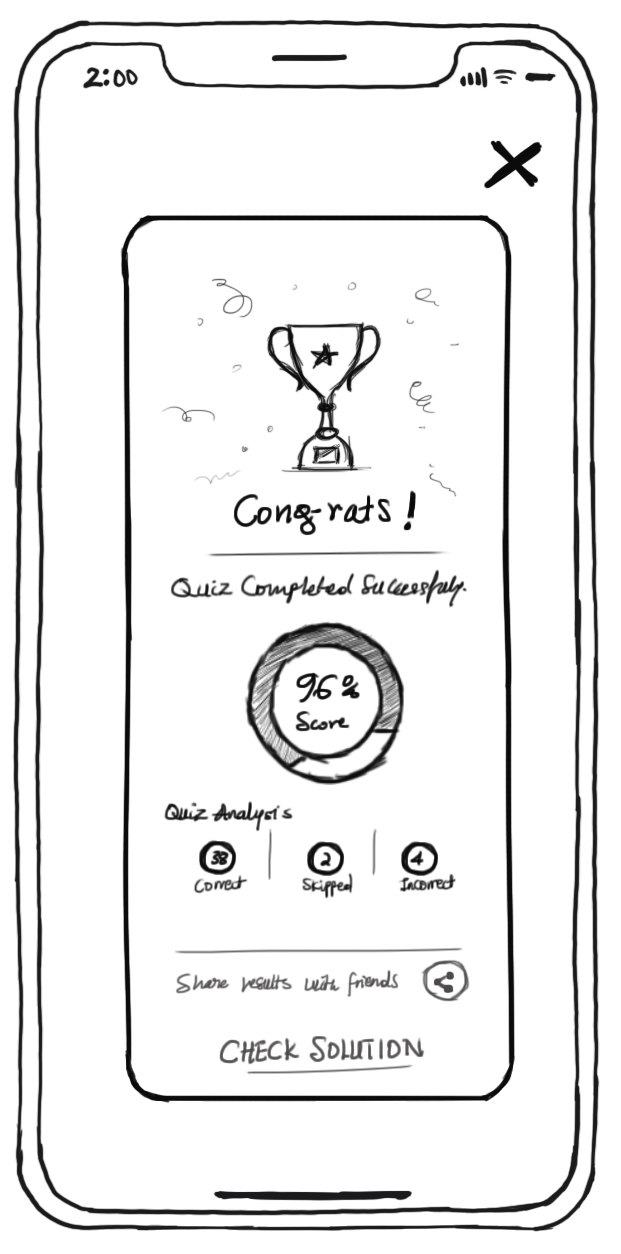 2:00
Congrats!
Quiz Completed Successfuly.
96%
Score
Quiz Analysis
38 2 4
Correct Skipped Incorrect
Share results with friends
CHECK SOLUTION